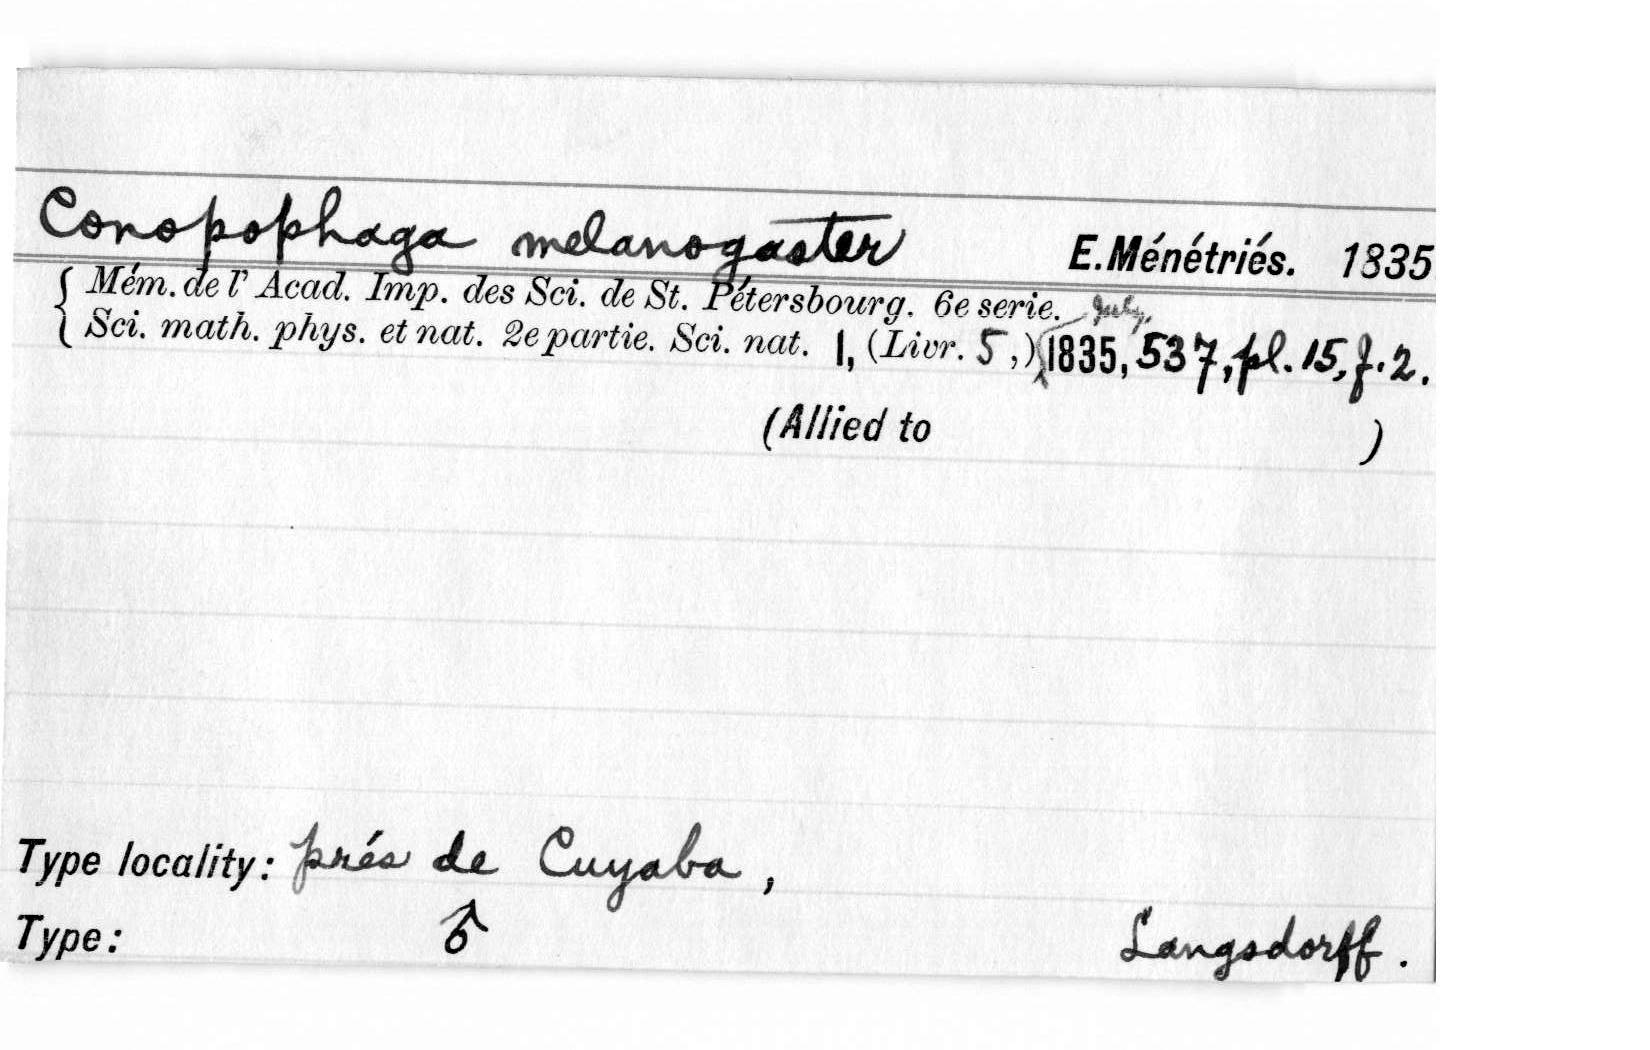 Conopophaga melanogaster E.Ménétriés. 1835
{ Mém. de l' Acad. Imp. des Sci. de St. Pétersbourg. 6e serie. July,
Sci. math. phys. et nat. 2e partie. Sci. nat. 1, (Livr. 5,) 1835, 537, pl. 15, f. 2.
(Allied to )
Type locality: prés de Cuyaba,
Type: ♂ Langsdorff.